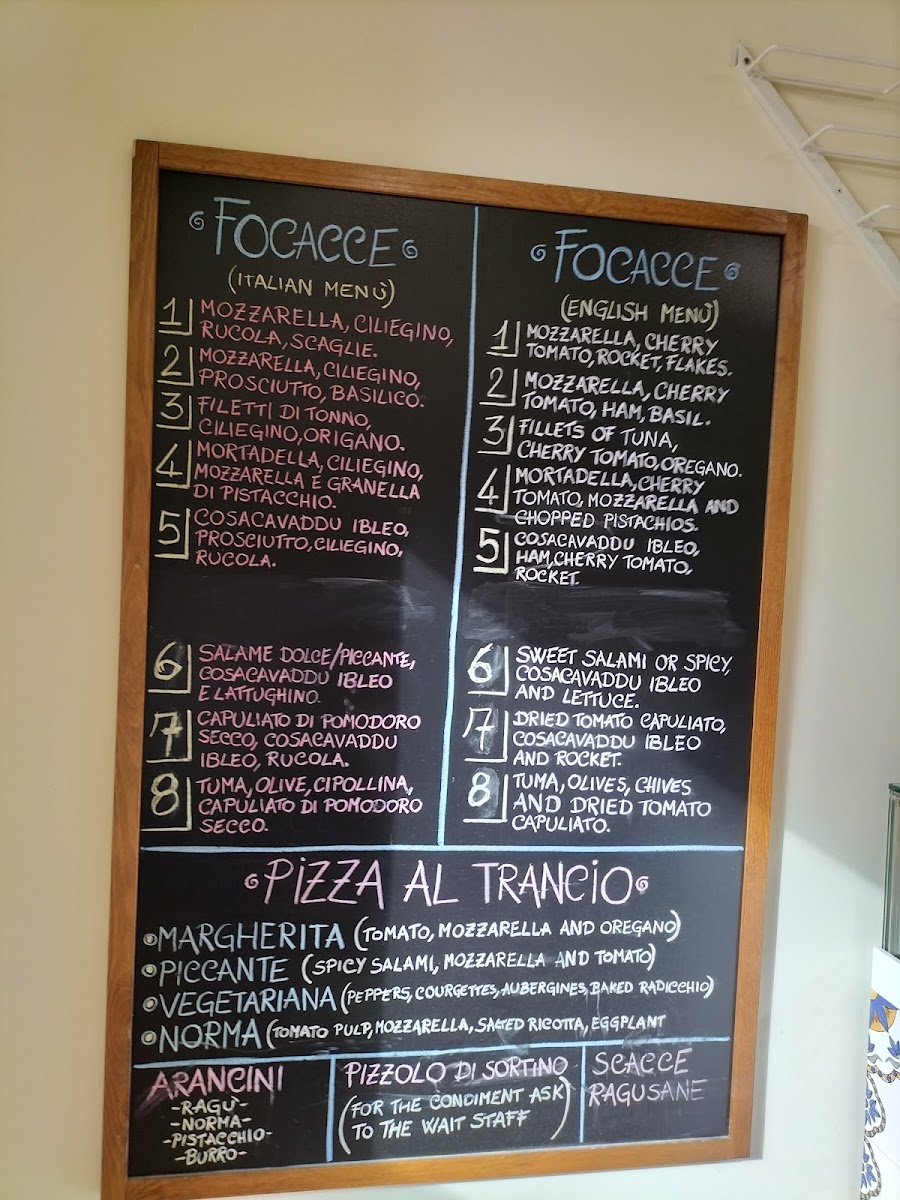 FOCACCE
(ITALIAN MENÙ)
1 MOZZARELLA, CILIEGINO,
RUCOLA, SCAGLIE.
2 MOZZARELLA, CILIEGINO,
PROSCIUTTO, BASILICO.
3 FILETTI DI TONNO,
CILIEGINO, ORIGANO.
4 MORTADELLA, CILIEGINO,
MOZZARELLA E GRANELLA
DI PISTACCHIO.
5 COSACAVADDU IBLEO,
PROSCIUTTO, CILIEGINO,
RUCOLA.
6 SALAME DOLCE/PICCANTE,
COSACAVADDU IBLEO
E LATTUGHINO.
7 CAPULIATO DI POMODORO
SECCO, COSACAVADDU
IBLEO, RUCOLA.
8 TUMA, OLIVE, CIPOLLINA,
CAPULIATO DI POMODORO
SECCO.
FOCACCE
(ENGLISH MENÙ)
1 MOZZARELLA, CHERRY
TOMATO, ROCKET, FLAKES.
2 MOZZARELLA, CHERRY
TOMATO, HAM, BASIL.
3 FILLETS OF TUNA,
CHERRY TOMATO, OREGANO.
4 MORTADELLA, CHERRY
TOMATO, MOZZARELLA AND
CHOPPED PISTACHIOS.
5 COSACAVADDU IBLEO,
HAM, CHERRY TOMATO,
ROCKET.
6 SWEET SALAMI OR SPICY,
COSACAVADDU IBLEO
AND LETTUCE.
7 DRIED TOMATO CAPULIATO,
COSACAVADDU IBLEO
AND ROCKET.
8 TUMA, OLIVES, CHIVES
AND DRIED TOMATO
CAPULIATO.
PIZZA AL TRANCIO
MARGHERITA (TOMATO, MOZZARELLA AND OREGANO)
PICCANTE (SPICY SALAMI, MOZZARELLA AND TOMATO)
VEGETARIANA (PEPPERS, COURGETTES, AUBERGINES, BAKED RADICCHIO)
NORMA (TOMATO PULP, MOZZARELLA, SALTED RICOTTA, EGGPLANT
ARANCINI
-RAGÙ-
-NORMA-
-PISTACCHIO-
-BURRO-
PIZZOLO DI SORTINO
(FOR THE CONDIMENT ASK
TO THE WAIT STAFF)
SCACCE
RAGUSANE